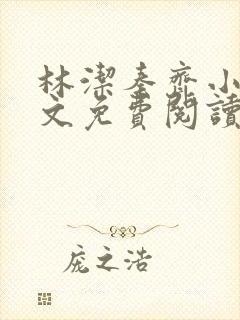 林潔秦齊小
文免費閱讀
庞之浩